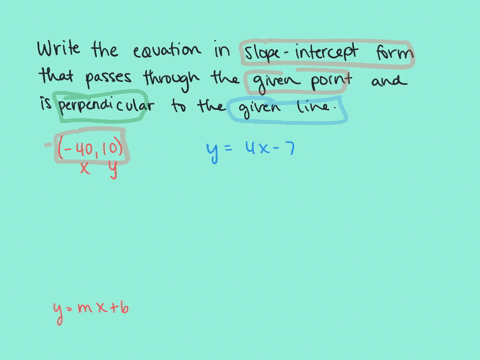 Write the equation in slope-intercept form
that passes through the given point and
is perpendicular to the given line.
(-40, 10)
x y
y = 4x - 7
y = mx + b